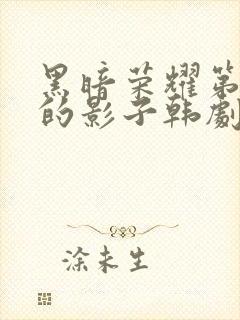 黑暗荣耀第
的影子韩劇
涂未生